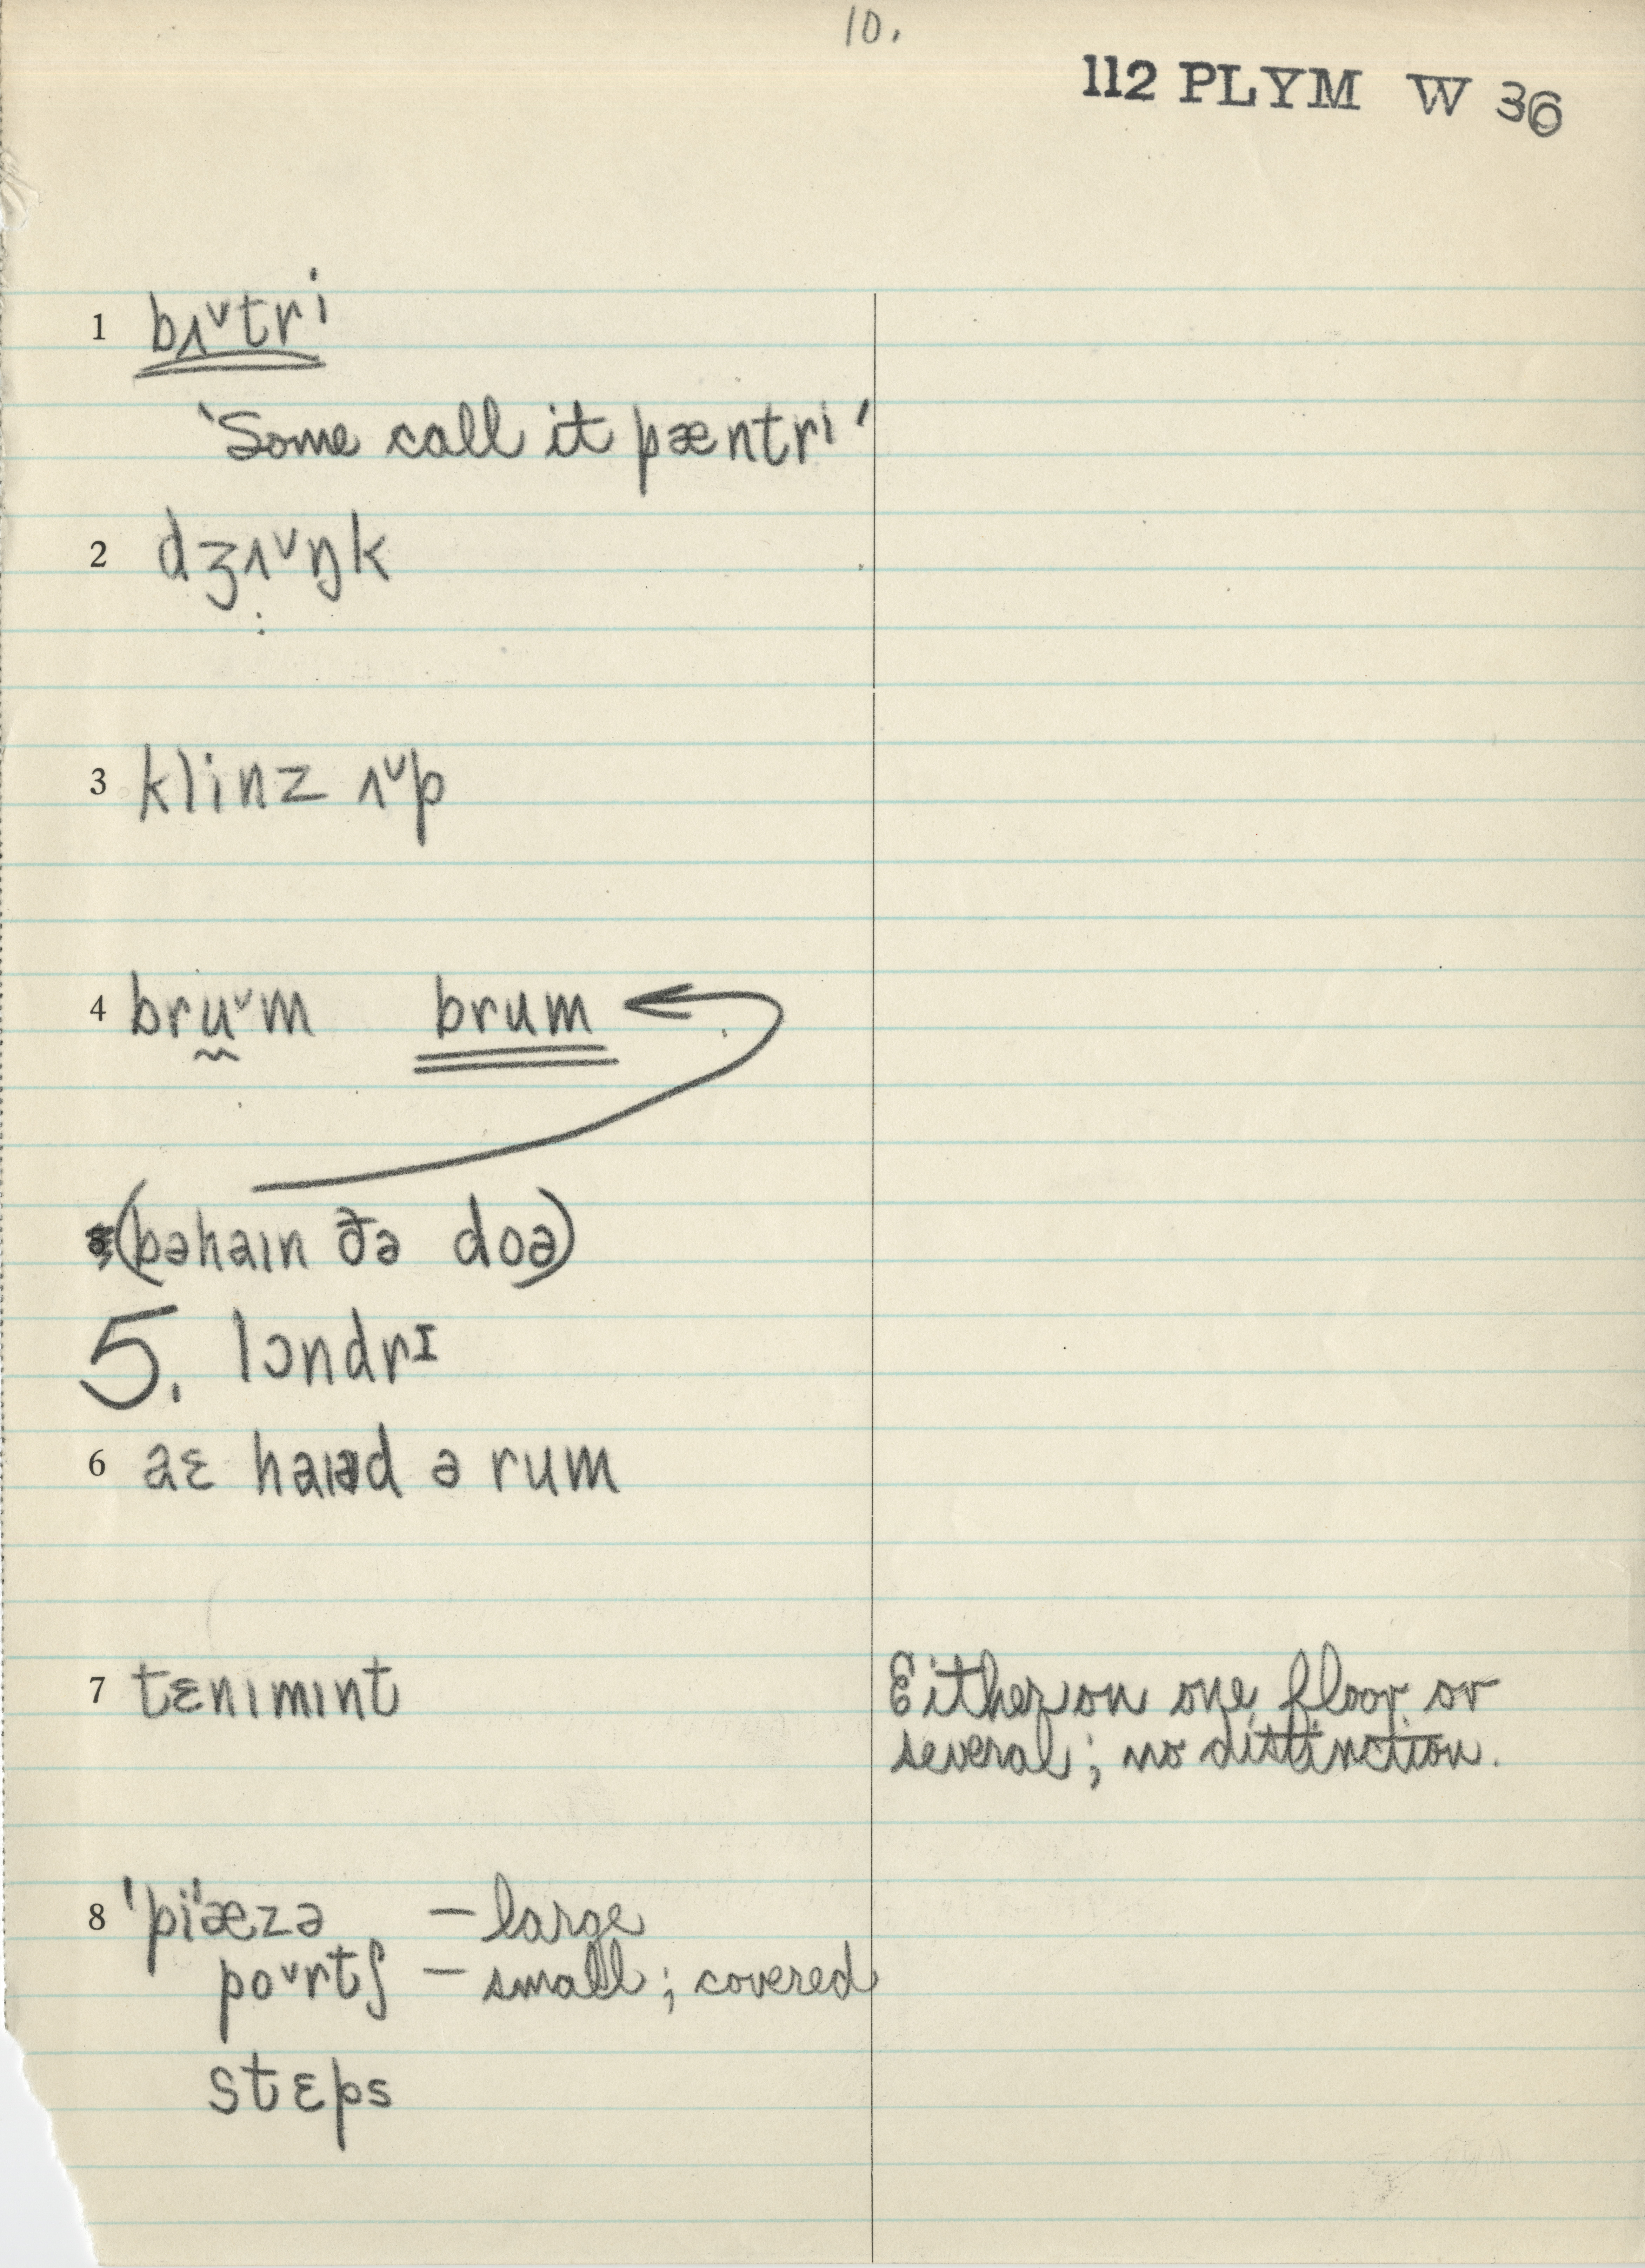 10.
112 PLYM W 36
1 bʌ˅tri
'Some call it pæntri'
2 dʒʌ˅ŋk
3 klinz ʌ˅p
4 bru˅m brum
(bəhaɪn ðə doə)
5. lɔndrɪ
6 aɛ ə rum
7 tɛnɪmɪnt
Either on one floor or
several; no distinction.
8 'pi'æzə — large
po˅rtʃ — small; covered
stɛps